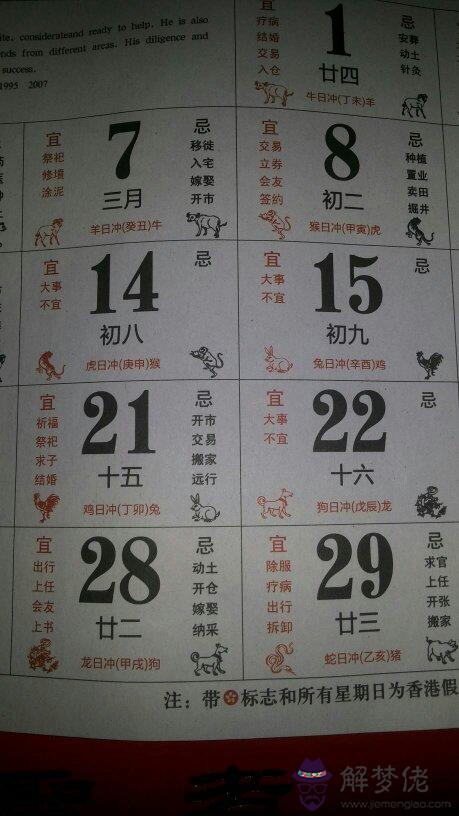 ite, considerateand ready to help. He is also
ends from different areas. His diligence and
success.
1995 2007
宜
疗病
结婚
交易
入仓
1
廿四
牛日冲(丁未)羊
忌
安葬
动土
针灸
宜
祭祀
修墳
涂泥
7
三月
羊日冲(癸丑)牛
忌
移徙
入宅
嫁娶
开市
宜
交易
立券
会友
签约
8
初二
猴日冲(甲寅)虎
忌
种植
置业
卖田
掘井
宜
大事
不宜
14
初八
虎日冲(庚申)猴
忌
宜
大事
不宜
15
初九
兔日冲(辛酉)鸡
忌
宜
祈福
祭祀
求子
结婚
21
十五
鸡日冲(丁卯)兔
忌
开市
交易
搬家
远行
宜
大事
不宜
22
十六
狗日冲(戊辰)龙
忌
宜
出行
上任
会友
上书
28
廿二
龙日冲(甲戌)狗
忌
动土
开仓
嫁娶
纳采
宜
除服
疗病
出行
拆卸
29
廿三
蛇日冲(乙亥)猪
忌
求官
上任
开张
搬家
注：带 标志和所有星期日为香港假
解梦佬
www.jiemenglao.com